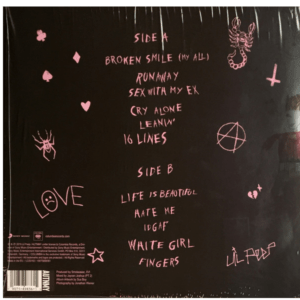 SIDE A
BROKEN SMILE (MY ALL)
RUNAWAY
SEX WITH MY EX
CRY ALONE
LEANIN'
16 LINES
SIDE B
LIFE IS BEAUTIFUL
HATE ME
IDGAF
WHITE GIRL
FINGERS
LOVE
LIL PEEP